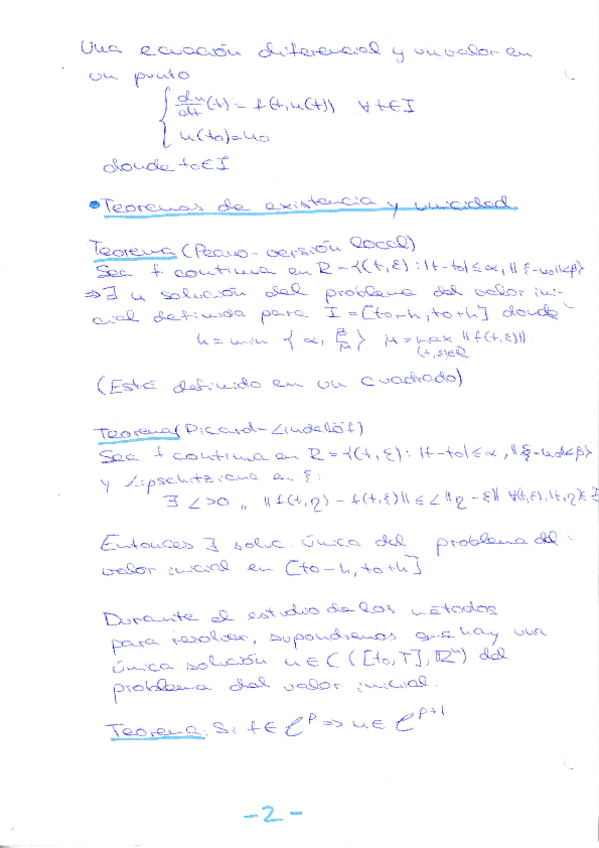 Una ecuación diferencial y un valor en
un punto
{ du/dt (t) = f(t,u(t)) ∀t∈I
u(t0)=u0
donde t0∈I
• Teoremas de existencia y unicidad
Teorema (Peano - versión local)
Sea f continua en R = {(t,ξ): |t-t0|≤α, ||ξ-u0||≤β}
⇒ ∃ u solución del problema del valor ini-
cial definida para I = [t0-h, t0+h] donde
h = min {α, β/M} M = max ||f(t,ξ)||
(t,ξ)∈R
(Está definido en un cuadrado)
Teorema (Picard-Lindelöf)
Sea f continua en R = {(t,ξ): |t-t0|≤α, ||ξ-u0||≤β}
y Lipschitziana en ξ:
∃ L>0 ,, ||f(t,η) - f(t,ξ)|| ≤ L ||η - ξ|| ∀(t,ξ), (t,η)∈
Entonces ∃ soluc. única del problema del
valor inicial en [t0-h, t0+h]
Durante el estudio de los métodos
para resolver, supondremos que hay una
única solución u ∈ C([t0,T], ℝⁿ) del
problema del valor inicial.
Teorema: Si f ∈ C^p ⇒ u ∈ C^{p+1}
-2-